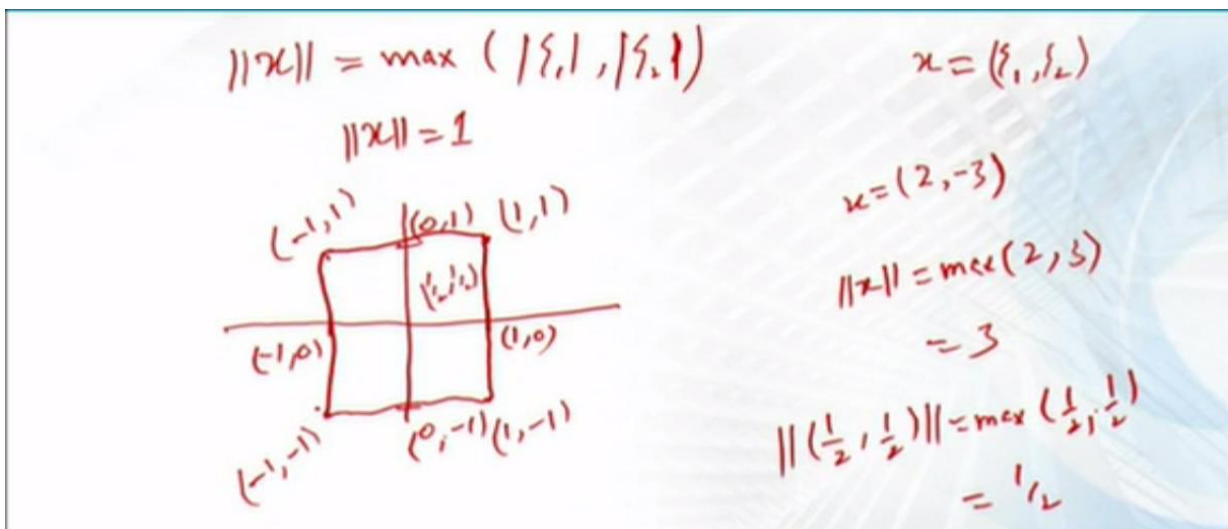 ||x|| = max (|ξ₁|, |ξ₂|)
||x|| = 1
(-1,1)
(0,1)
(1,1)
(½,½)
(-1,0)
(1,0)
(-1,-1)
(0,-1)
(1,-1)
x = (ξ₁, ξ₂)
x = (2,-3)
||x|| = max(2,3)
= 3
||(½, ½)|| = max (½, ½)
= ½